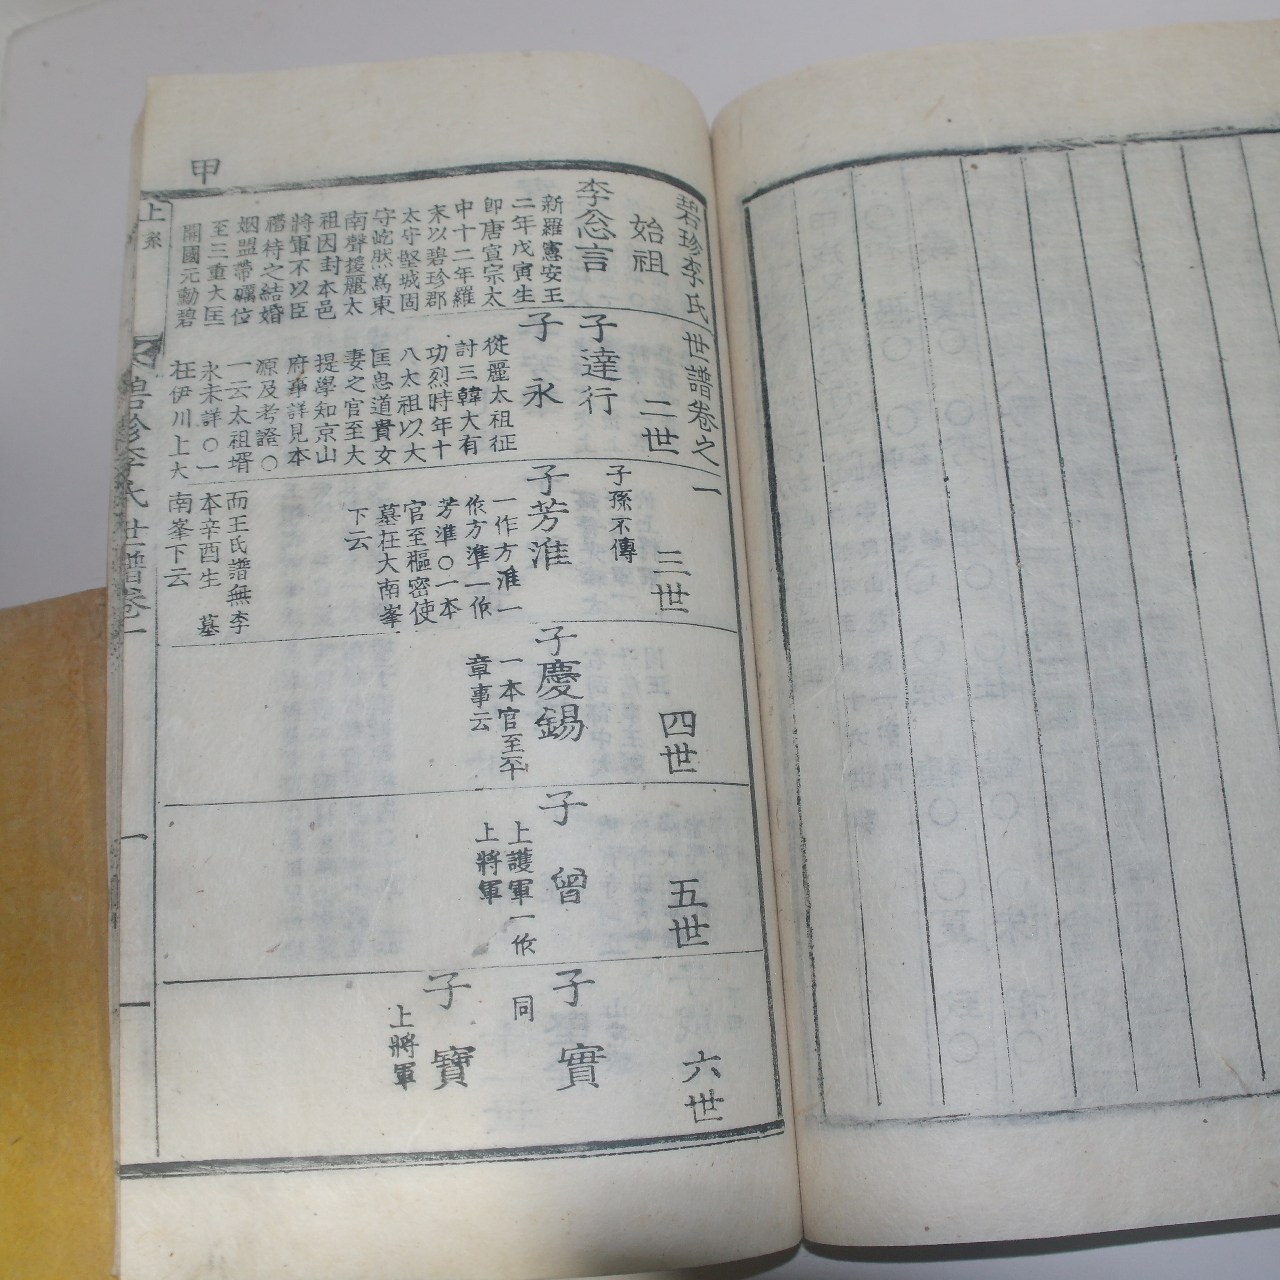 甲
碧珍李氏世譜卷之一
始祖
李忩言
新羅憲安王
二年戊寅生
卽唐宣宗太
中十二年羅
末以碧珍郡
太守堅城固
守屹然爲東
南聲援麗太
祖因封本邑
將軍不以臣
禮待之結婚
姻盟帶礪位
至三重大匡
開國元勳碧
二世
子達行
子永
從麗太祖征
討三韓大有
功烈時年十
八太祖以大
匡思道貴女
妻之官至大
提學知京山
府事詳見本
源及考證〇
一云太祖壻
永未詳〇一
在伊川上大
三世
子孫不傳
子芳淮
一作方淮一
作方準一作
芳準〇一本
官至樞密使
墓在大南峯
下云
而王氏譜無李
本辛酉生 墓
南峯下云
四世
子慶錫
一本官至平
章事云
五世
子曾
上護軍一作
上將軍
六世
子實
同
子寶
上將軍
上系
碧珍李氏世譜卷一
一